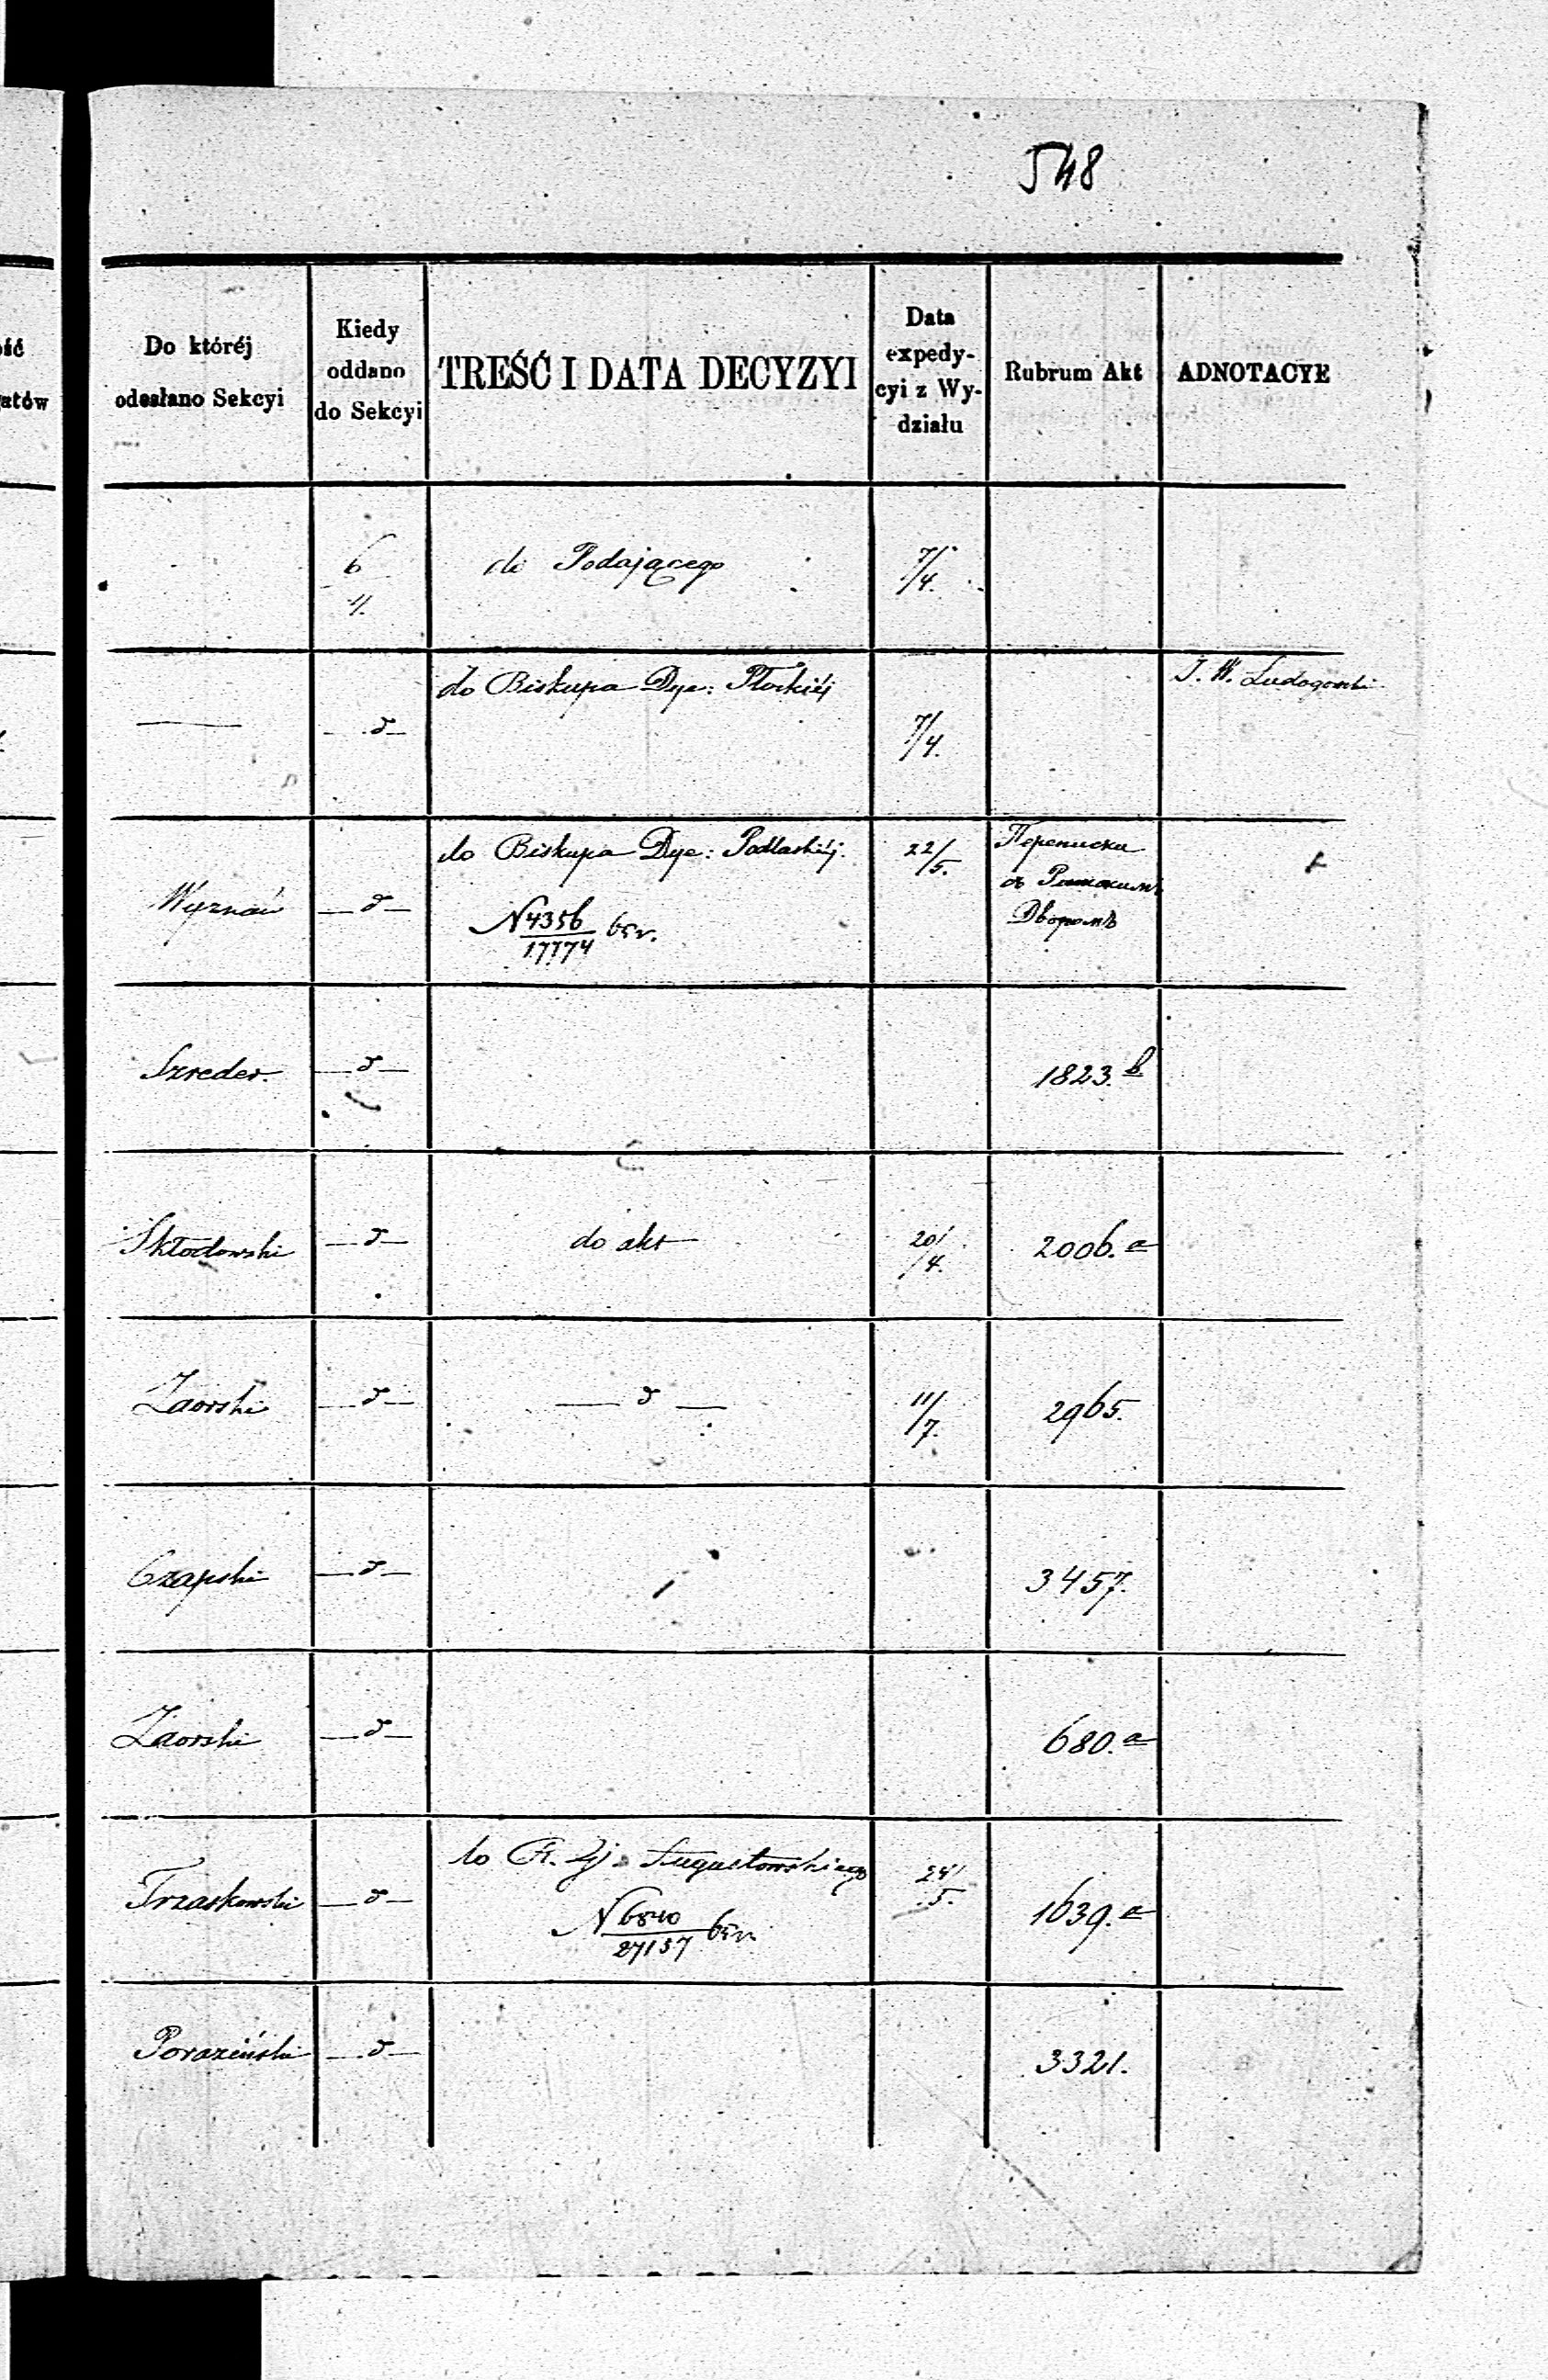 548
ść
atów
Do któréj
odesłano Sekcyi
Kiedy
oddano
do Sekcyi
TREŚĆ I DATA DECYZYI
Data
expedy-
cyi z Wy-
działu
Rubrum Akt
ADNOTACYE
6
4.
do Podającego
7/4.
— d —
do Biskupa Dye: Płockiéj
7/4.
J. W. Ludogowski
— d —
do Biskupa Dye: Podlaskiéj.
N 4356
17774
22/5.
Переписка
съ Римскимъ
Дворомъ
Szreder.
— d —
1823. b
Skłodowski
— d —
do akt
20/4.
2006. a
Zaorski
— d —
— d —
11/7.
2965.
Czapski
— d —
3457.
Zaorski
— d —
680. a
Trzaskowski
— d —
do Augustowskiego
N 6840
27137
24/5.
1639. a
Poraziński
— d —
3321.